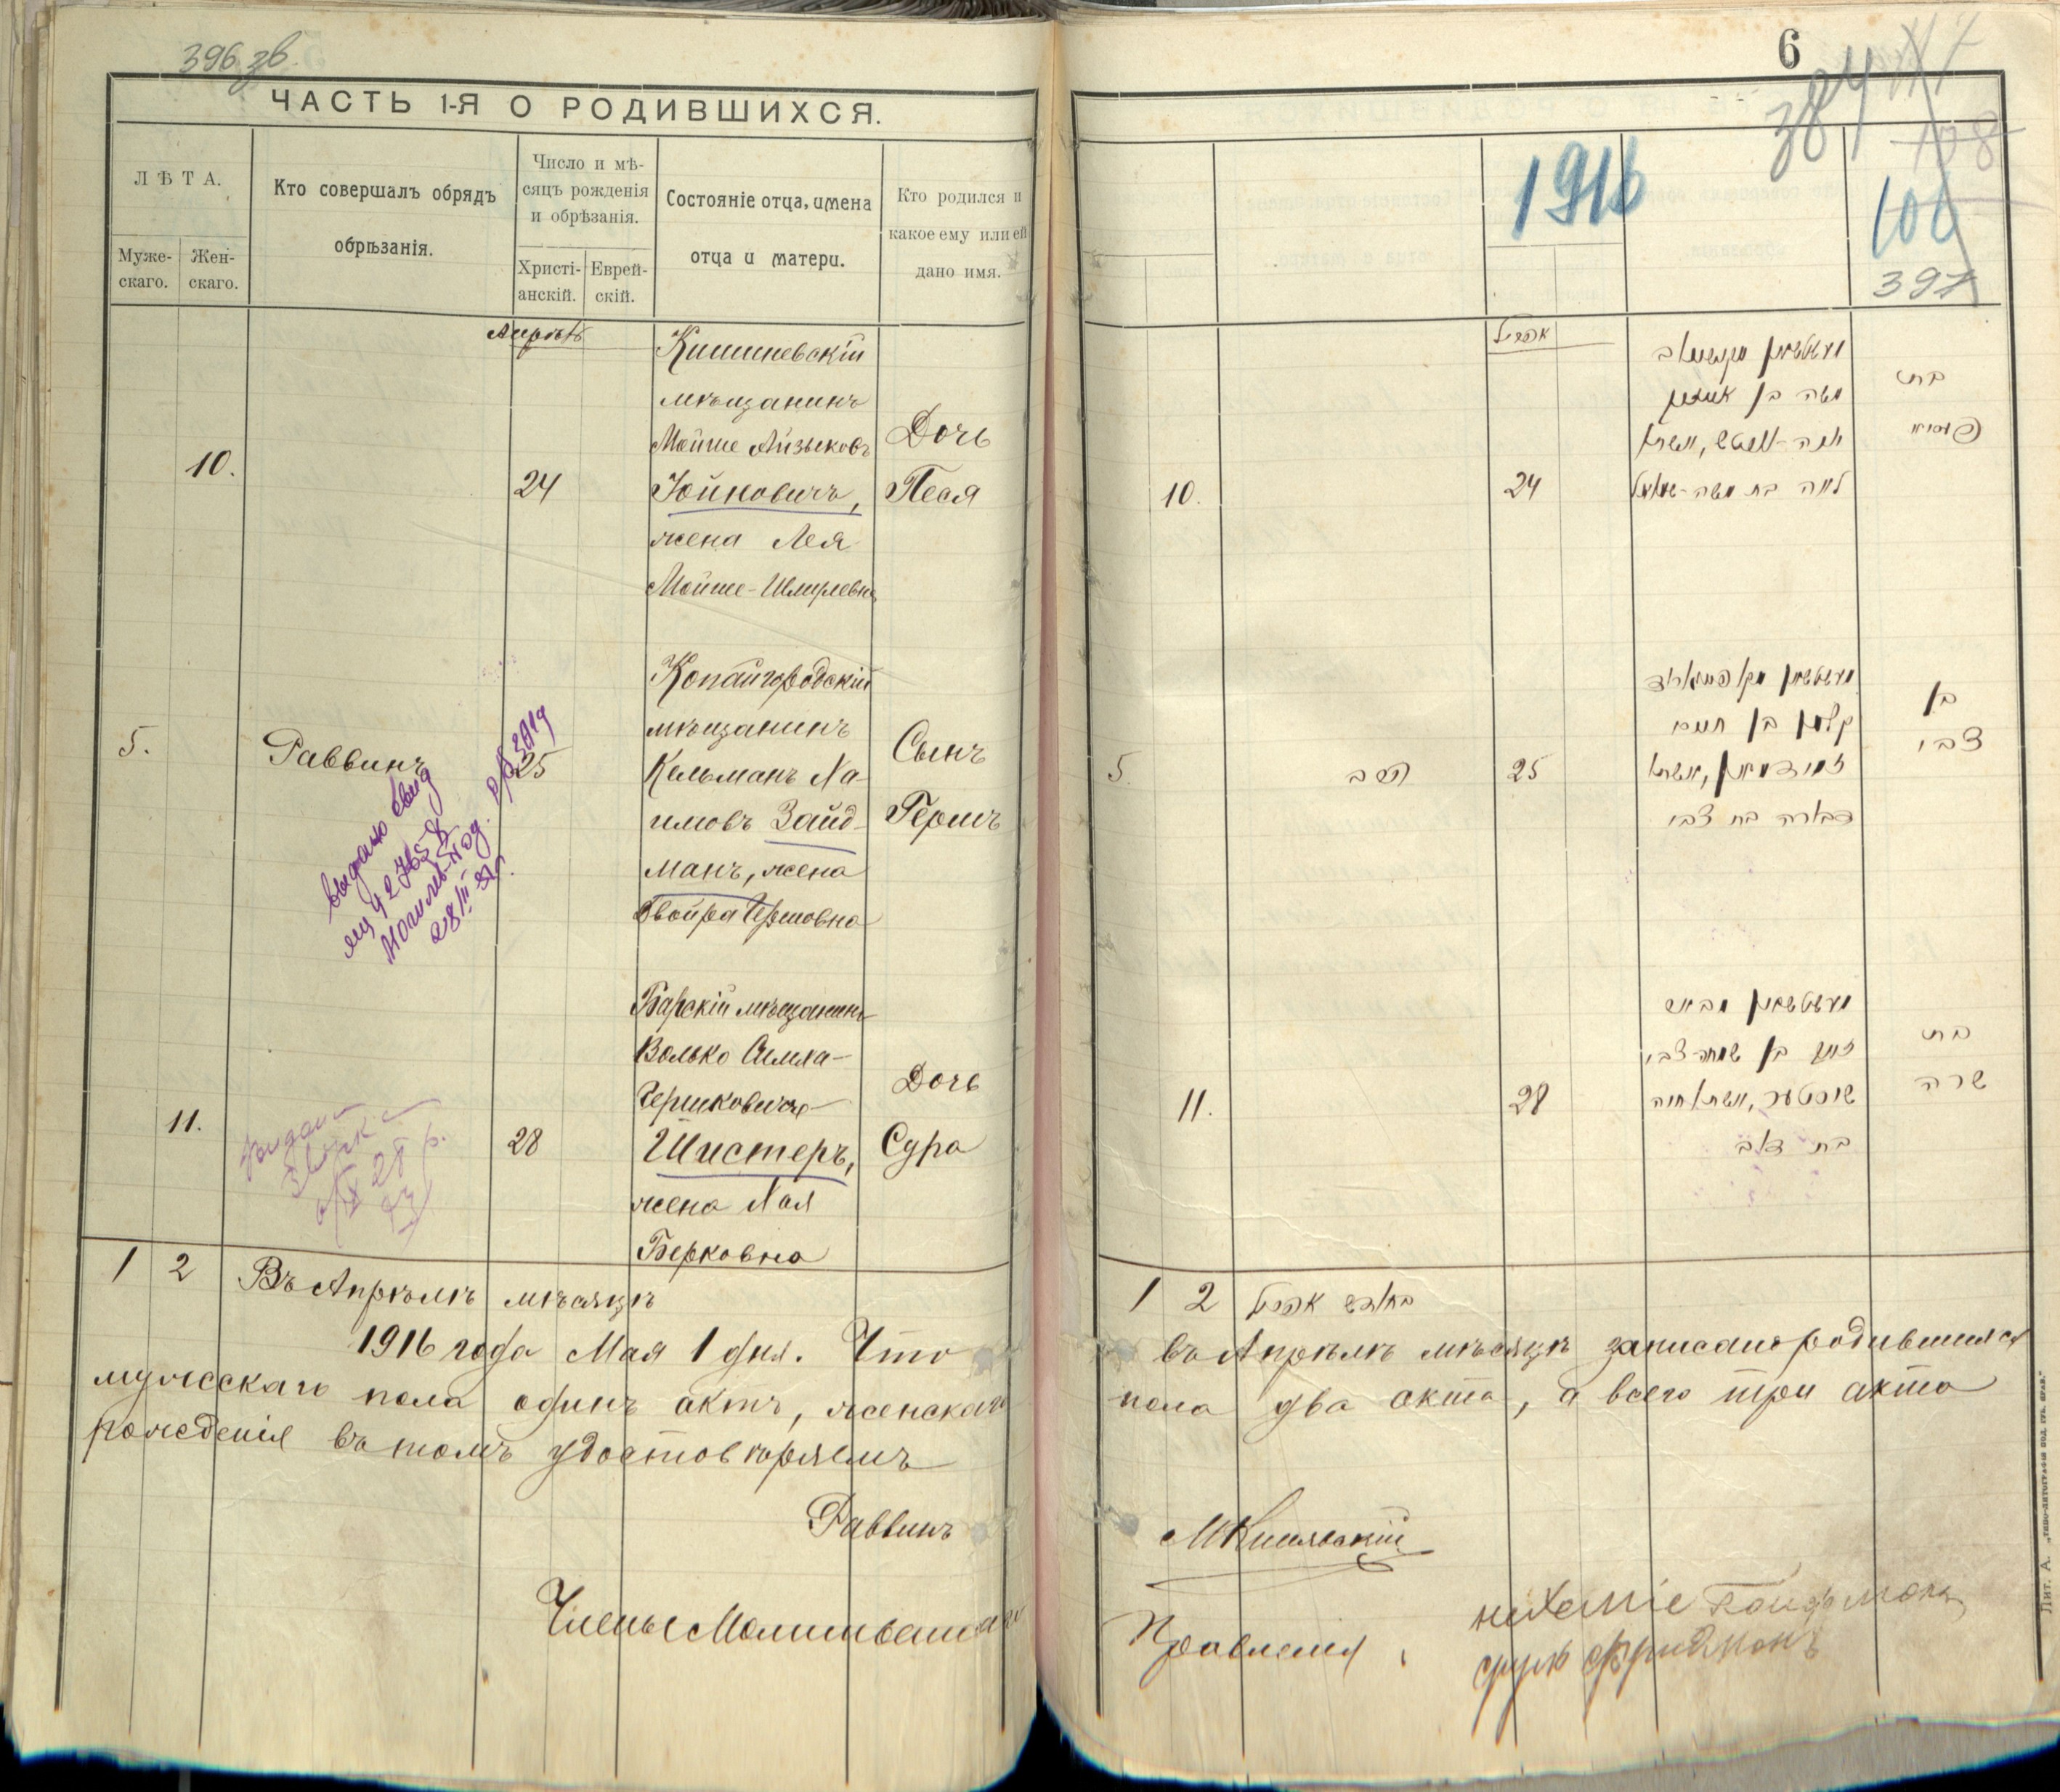 396 зв.
ЧАСТЬ 1-Я О РОДИВШИХСЯ.
ЛѢТА.
Муже-
скаго.
Жен-
скаго.
Кто совершалъ обрядъ
обрѣзанія.
Число и мѣ-
сяцъ рожденія
и обрѣзанія.
Христі-
анскій.
Еврей-
скій.
Состояніе отца, имена
отца и матери.
Кто родился и
какое ему или ей
дано имя.
Апрѣль
10.
24
Кишиневскій
мѣщанинъ
Мойше Айзыковъ
Юйновичъ,
жена Лея
Мойше-Шмулевна
Дочь
Песя
5.
Раввинъ
25
Копайгородскій
мѣщанинъ
Кельманъ Ха-
имовъ Зайд-
манъ, жена
Двойра Гершовна
Сынъ
Гершъ
выдано свид
28/III
11.
28
Барскій мѣщанинъ
Волько Симха-
Гершковичъ
Шистеръ,
жена Хая
Берковна
Дочь
Сура
1 2 Въ Апрѣлѣ мѣсяцѣ
1916 года Мая 1 дня. Что
мужескаго пола одинъ актъ, женскаго
рожденія въ томъ удостовѣряемъ
Раввинъ
Члены Молитвеннаго
6
384
108
1916
106
397
אפריל
10.
24
משה בן אייזיק
לאה בת משה-שמואל
בת
פעסיא
5.
הרב
25
קלמן בן חיים
זיידמאן, אשתו
דבורה בת צבי
בן
צבי
11.
28
וועלף בן שמחה-צבי
שיסטער, אשתו חיה
בת דוב
בת
שרה
1 2 בחודש אפריל
въ Апрѣлѣ мѣсяцѣ записано родившихся
пола два акта, а всего три акта
Правленія
Сруль Фридманъ